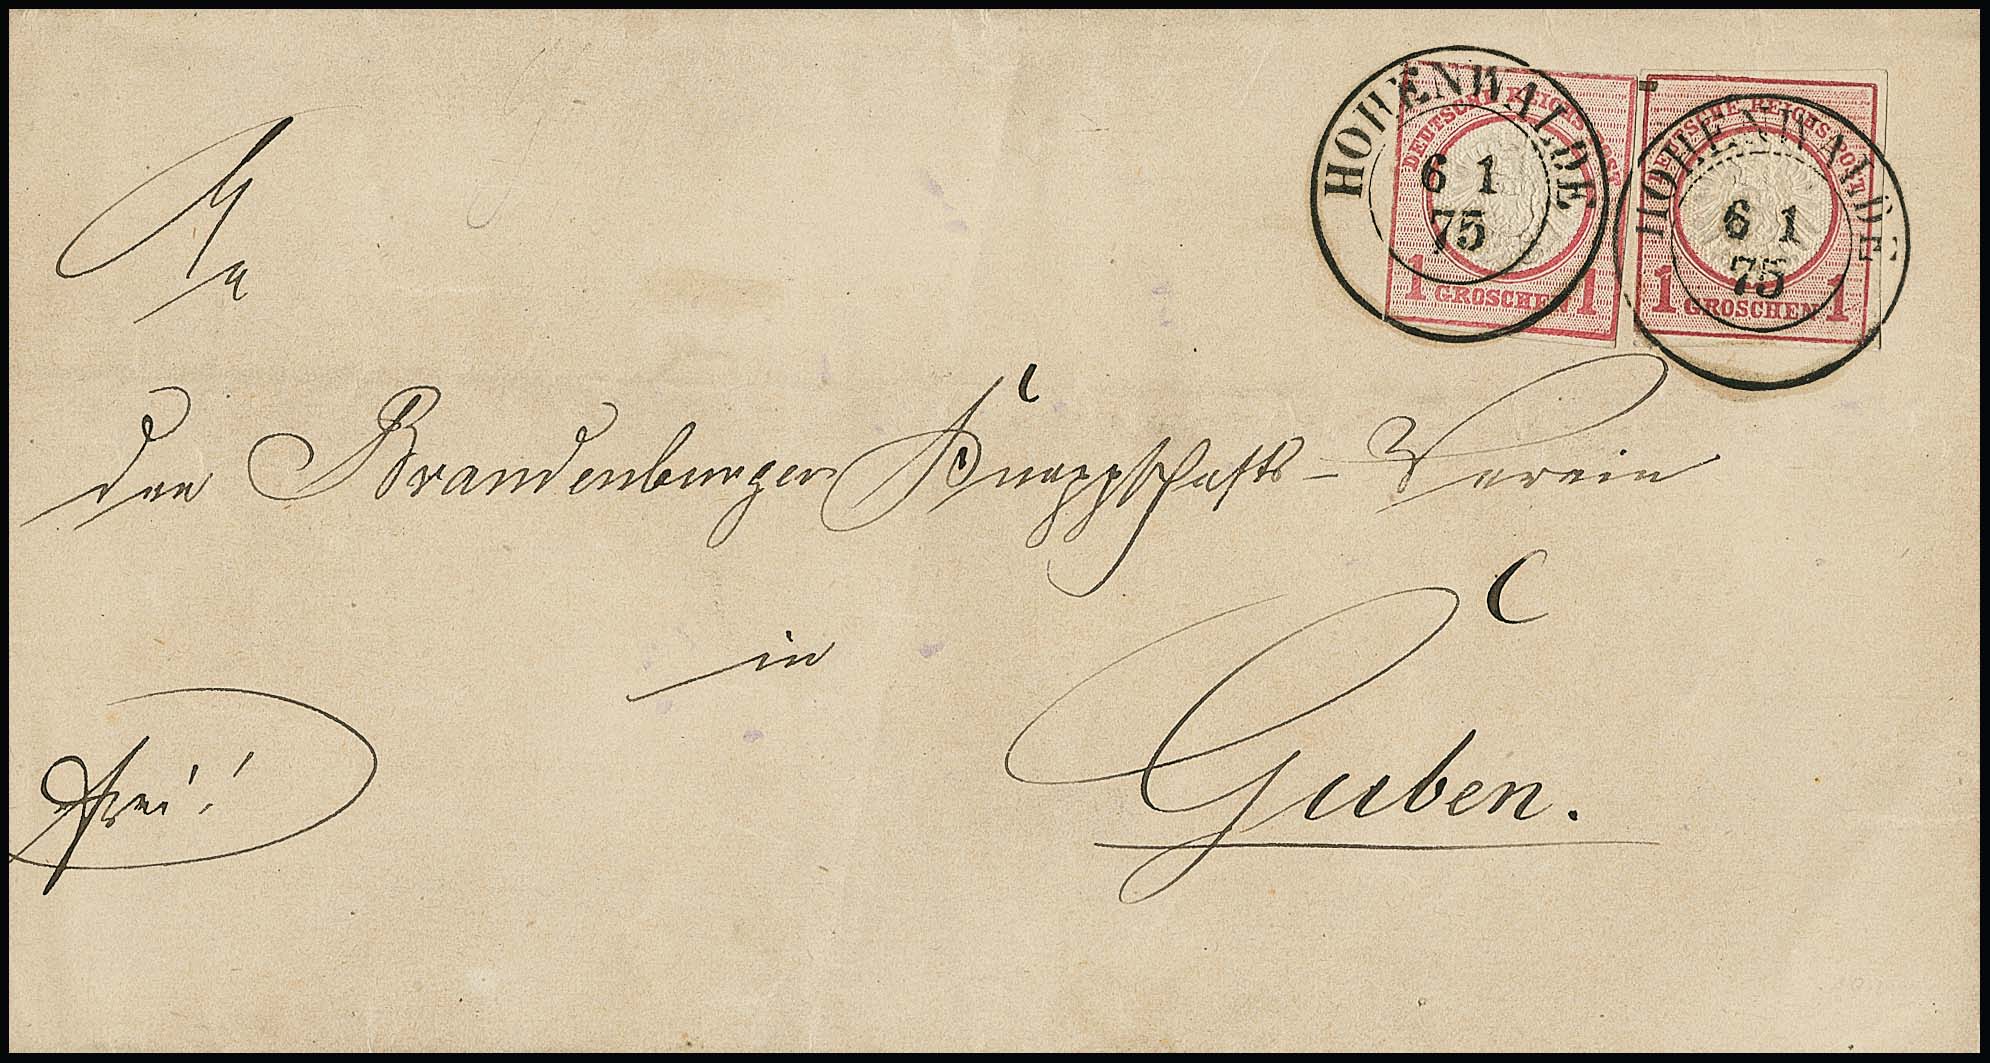 HOHENWALDE
6 1
75
DEUTSCHE REICHS-POST
1 GROSCHEN 1
HOHENWALDE
6 1
75
DEUTSCHE REICHS-POST
1 GROSCHEN 1
An
den Brandenburger Knappschafts-Verein
in
Guben.
frei!